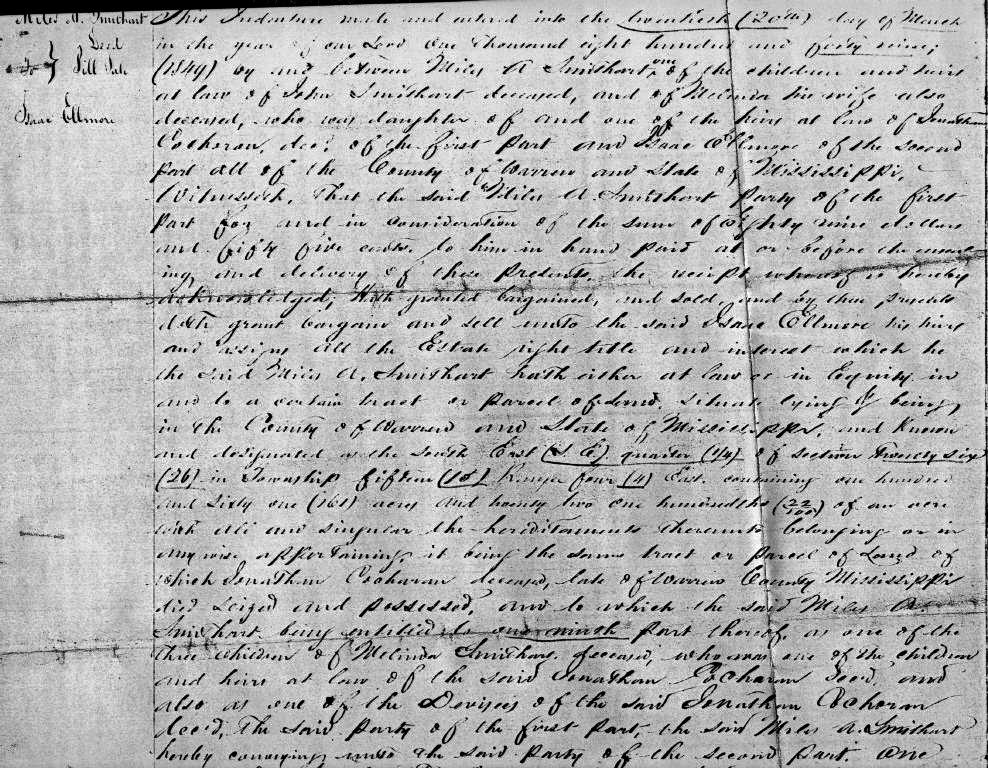 Miles A. Smithart
Deed
to } Bill Sale
Isaac Ellmore
This Indenture made and entered into the twentieth (20th) day of March
in the year of our Lord One Thousand eight hundred and forty nine;
(1849) by and between Miles A Smithart, one of the children and heirs
at law of John Smithart deceased, and of Melinda his wife also
deceased, who was daughter of and one of the heirs at law of Jonathan
Cocheron, decd of the first part and Isaac Ellmore of the second
part all of the County of Warren and State of Mississippi,
Witnesseth, That the said Miles A Smithart party of the first
part for and in consideration of the sum of Eighty nine dollars
and fifty five cents, to him in hand paid at or before the enseal-
ing and delivery of these presents, the receipt whereof is hereby
acknowledged; Hath granted bargained, and sold, and by these presents
doth grant bargain and sell unto the said Isaac Ellmore his heirs
and assigns all the Estate right title and interest which he
the said Miles A. Smithart hath either at law or in Equity in
and to a certain tract or parcel of Land, situate lying & being,
in the County of Warren and State of Mississippi, and known
and designated as the South East (S. E) quarter (1/4) of section Twenty six
(26) in Township fifteen (15) Range four (4) East. containing one hundred
and sixty one (161) acres and twenty two one hundredths (22/100) of an acre
with all and singular the hereditaments thereunto belonging or in
any wise appertaining, it being the same tract or parcel of Land of
which Jonathan Cocharan deceased, late of Warren County Mississippi
died seized and possessed, and to which the said Miles A.
Smithart being entitled to one ninth part thereof, as one of the
three children of Melinda Smithart deceased, who was one of the children
and heirs at law of the said Jonathan Cocharan decd, and
also as one of the Devisees of the said Jonathan Cocheran
decd, The said party of the first part, the said Miles A. Smithart
hereby conveying unto the said party of the second part. One